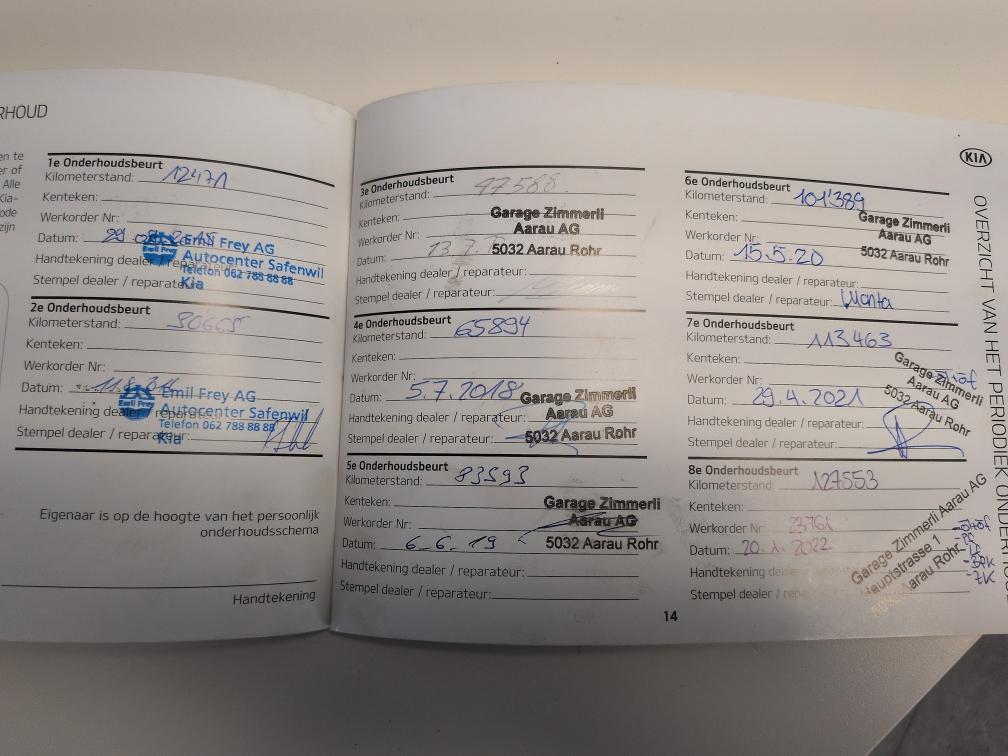 RHOUD
en te
er of
Alle
Kia-
ode
zijn
1e Onderhoudsbeurt
Kilometerstand: 12471
Kenteken:
Werkorder Nr:
Datum: 29.
Handtekening dealer / reparateur:
Stempel dealer / reparateur:
Emil Frey AG
Autocenter Safenwil
Telefon 062 788 88 88
Kia
2e Onderhoudsbeurt
Kilometerstand:
Kenteken:
Werkorder Nr:
Datum:
Handtekening dealer / reparateur:
Stempel dealer / reparateur:
Emil Frey AG
Autocenter Safenwil
Telefon 062 788 88 88
Kia
Eigenaar is op de hoogte van het persoonlijk
onderhoudsschema
Handtekening
3e Onderhoudsbeurt
Kilometerstand: 47588
Kenteken:
Werkorder Nr:
Datum: 13.7.
Handtekening dealer / reparateur:
Stempel dealer / reparateur:
Garage Zimmerli
Aarau AG
5032 Aarau Rohr
4e Onderhoudsbeurt
Kilometerstand: 65894
Kenteken:
Werkorder Nr:
Datum: 5.7.2018
Handtekening dealer / reparateur:
Stempel dealer / reparateur:
Garage Zimmerli
Aarau AG
5032 Aarau Rohr
5e Onderhoudsbeurt
Kilometerstand: 83593
Kenteken:
Werkorder Nr:
Datum: 6.6.19
Handtekening dealer / reparateur:
Stempel dealer / reparateur:
Garage Zimmerli
Aarau AG
5032 Aarau Rohr
14
KIA
6e Onderhoudsbeurt
Kilometerstand: 101'389
Kenteken:
Werkorder Nr:
Datum: 15.5.20
Handtekening dealer / reparateur:
Stempel dealer / reparateur:
Garage Zimmerli
Aarau AG
5032 Aarau Rohr
7e Onderhoudsbeurt
Kilometerstand: 113463
Kenteken:
Werkorder Nr:
Datum: 29.4.2021
Handtekening dealer / reparateur:
Stempel dealer / reparateur:
Garage Zimmerli
Aarau AG
5032 Aarau Rohr
8e Onderhoudsbeurt
Kilometerstand: 127553
Kenteken:
Werkorder Nr: 23761
Datum: 20.1.2022
Handtekening dealer
Stempel dealer /
Garage Zimmerli Aarau AG
Hauptstrasse 1
Aarau Rohr
OVERZICHT VAN HET PERIODIEK ONDERHOUD